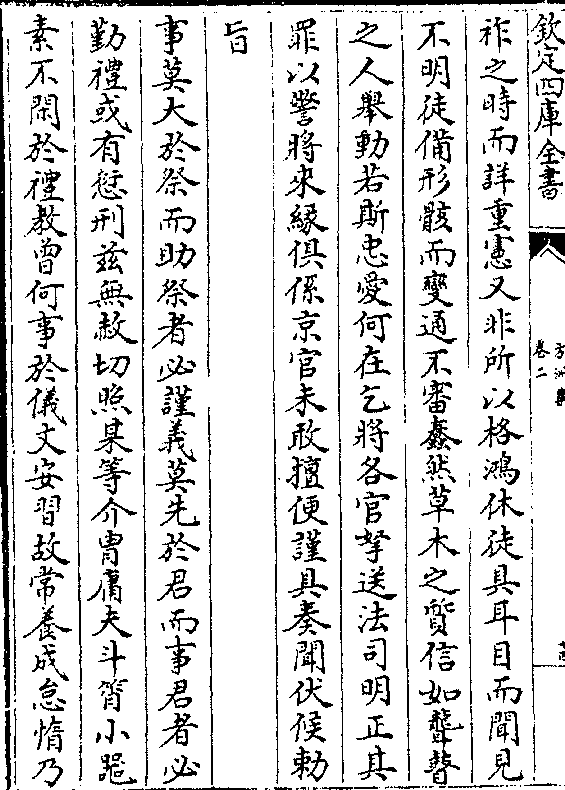 欽定四庫全書
卷二
祚之時而詳重憲又非所以格鴻休徒具耳目而聞見
不明徒備形骸而變通不審蠢然草木之質信如聾瞽
之人舉動若斯忠愛何在乞將各官拏送法司明正其
罪以警將來緣俱係京官未敢擅便謹具奏聞伏候勅
旨
事莫大於祭而助祭者必謹義莫先於君而事君者必
勤禮或有愆刑茲無赦切照某等介冑庸夫斗筲小器
素不閑於禮教曾何事於儀文安習故常養成怠惰乃